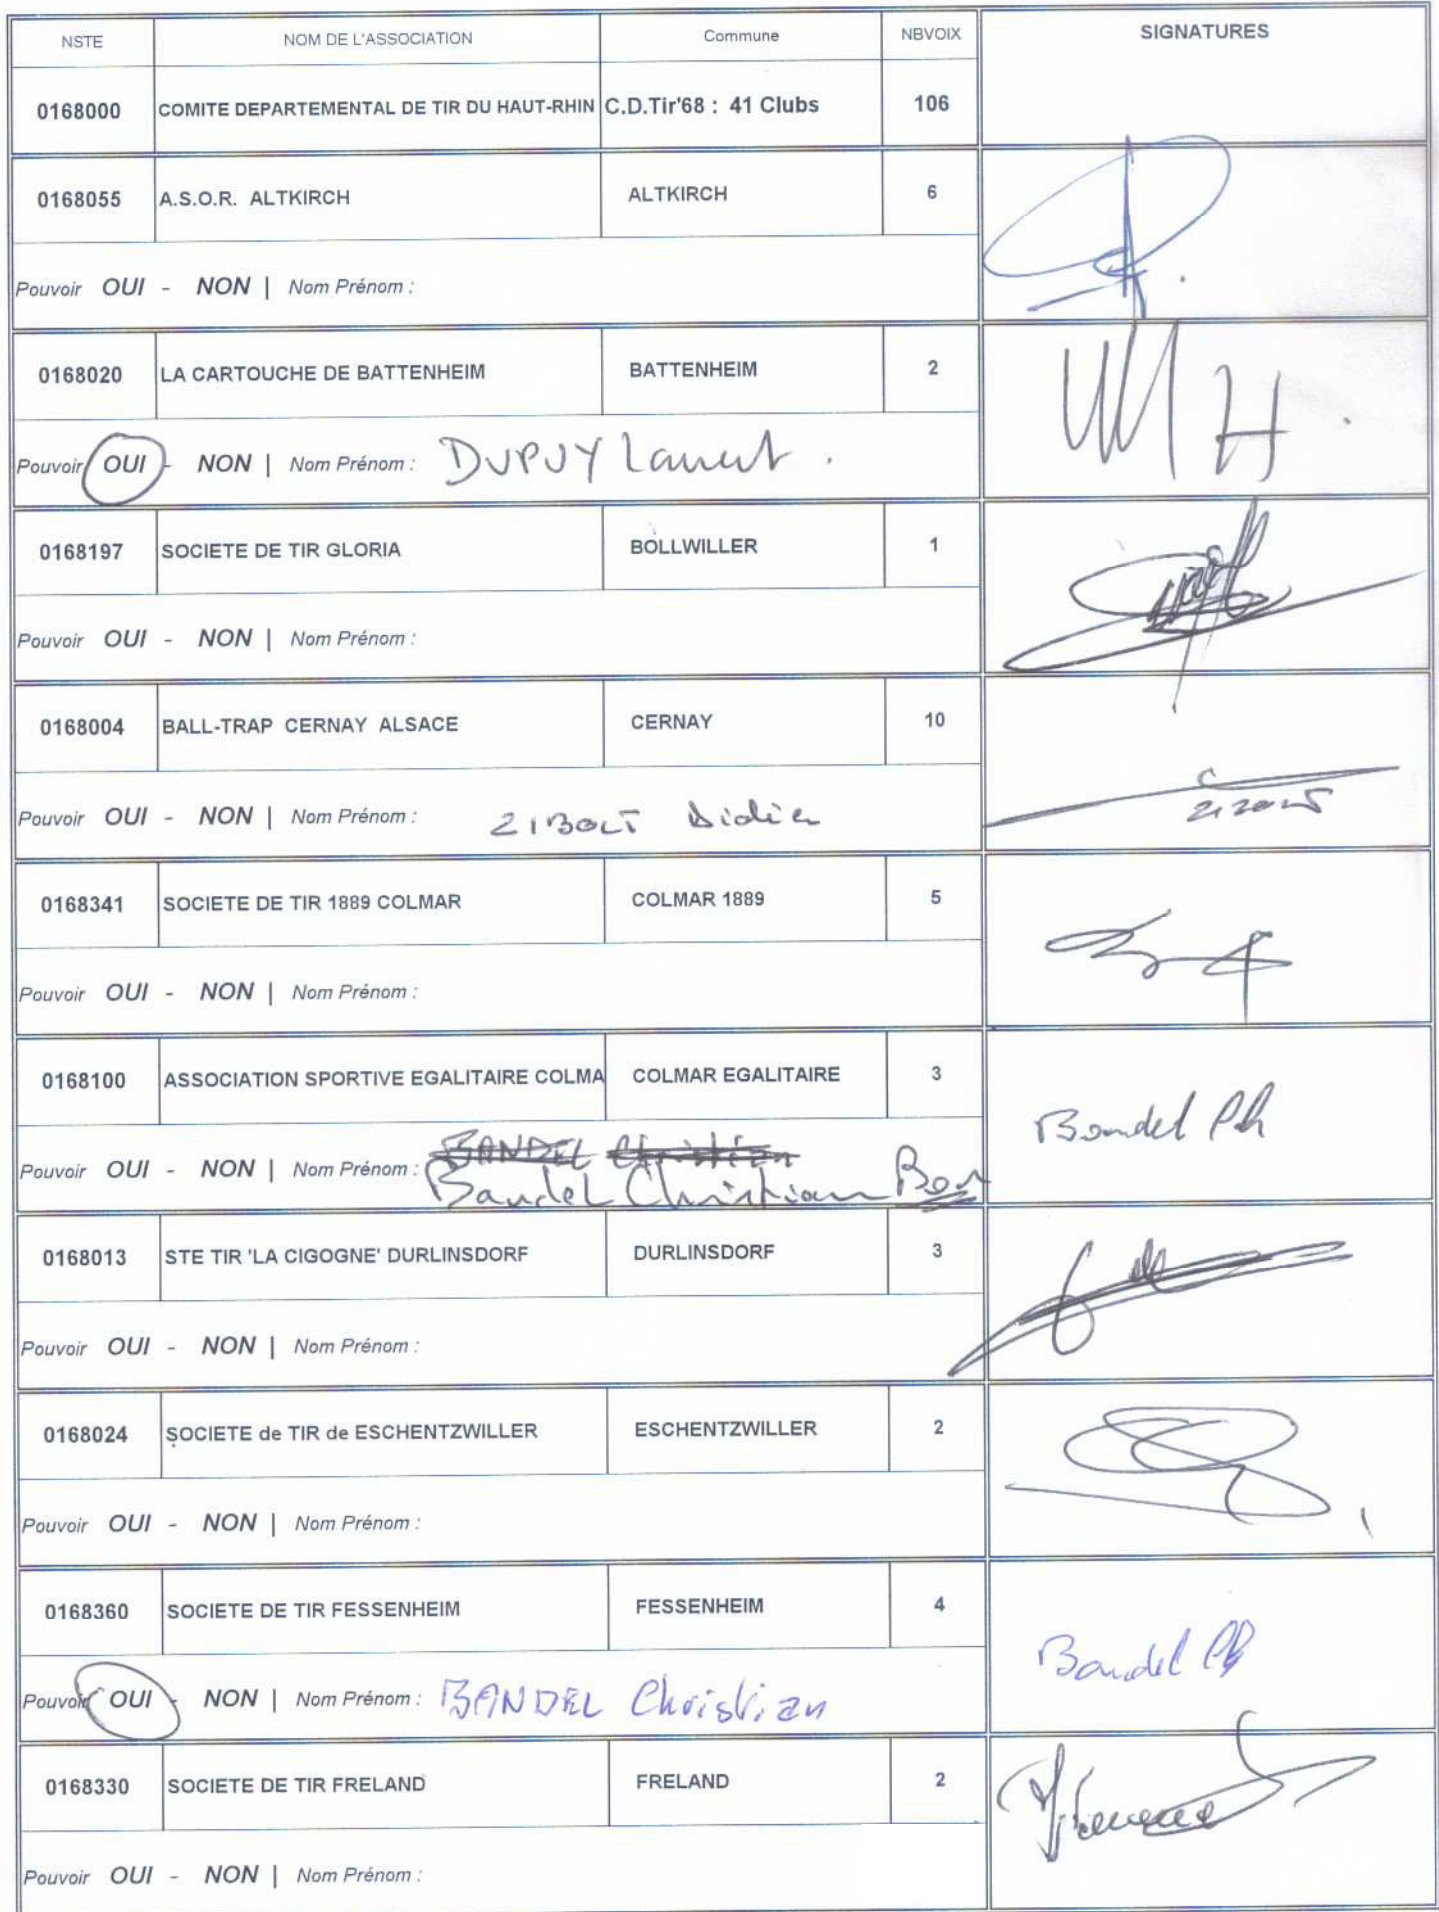 NSTE NOM DE L'ASSOCIATION Commune NBVOIX SIGNATURES
0168000 COMITE DEPARTEMENTAL DE TIR DU HAUT-RHIN C.D.Tir'68 : 41 Clubs 106
0168055 A.S.O.R. ALTKIRCH ALTKIRCH 6
Pouvoir OUI - NON | Nom Prénom :
0168020 LA CARTOUCHE DE BATTENHEIM BATTENHEIM 2
Pouvoir OUI - NON | Nom Prénom : DUPUY Laurent .
0168197 SOCIETE DE TIR GLORIA BOLLWILLER 1
Pouvoir OUI - NON | Nom Prénom :
0168004 BALL-TRAP CERNAY ALSACE CERNAY 10
Pouvoir OUI - NON | Nom Prénom : ZIBOLT Didier
0168341 SOCIETE DE TIR 1889 COLMAR COLMAR 1889 5
Pouvoir OUI - NON | Nom Prénom :
0168100 ASSOCIATION SPORTIVE EGALITAIRE COLMA COLMAR EGALITAIRE 3 Bandel Ch
BANDEL Christian
Pouvoir OUI - NON | Nom Prénom : Bandel Christian
0168013 STE TIR 'LA CIGOGNE' DURLINSDORF DURLINSDORF 3
Pouvoir OUI - NON | Nom Prénom :
0168024 SOCIETE de TIR de ESCHENTZWILLER ESCHENTZWILLER 2
Pouvoir OUI - NON | Nom Prénom :
0168360 SOCIETE DE TIR FESSENHEIM FESSENHEIM 4 Bandel Ch
Pouvoir OUI - NON | Nom Prénom : BANDEL Christian
0168330 SOCIETE DE TIR FRELAND FRELAND 2
Pouvoir OUI - NON | Nom Prénom :